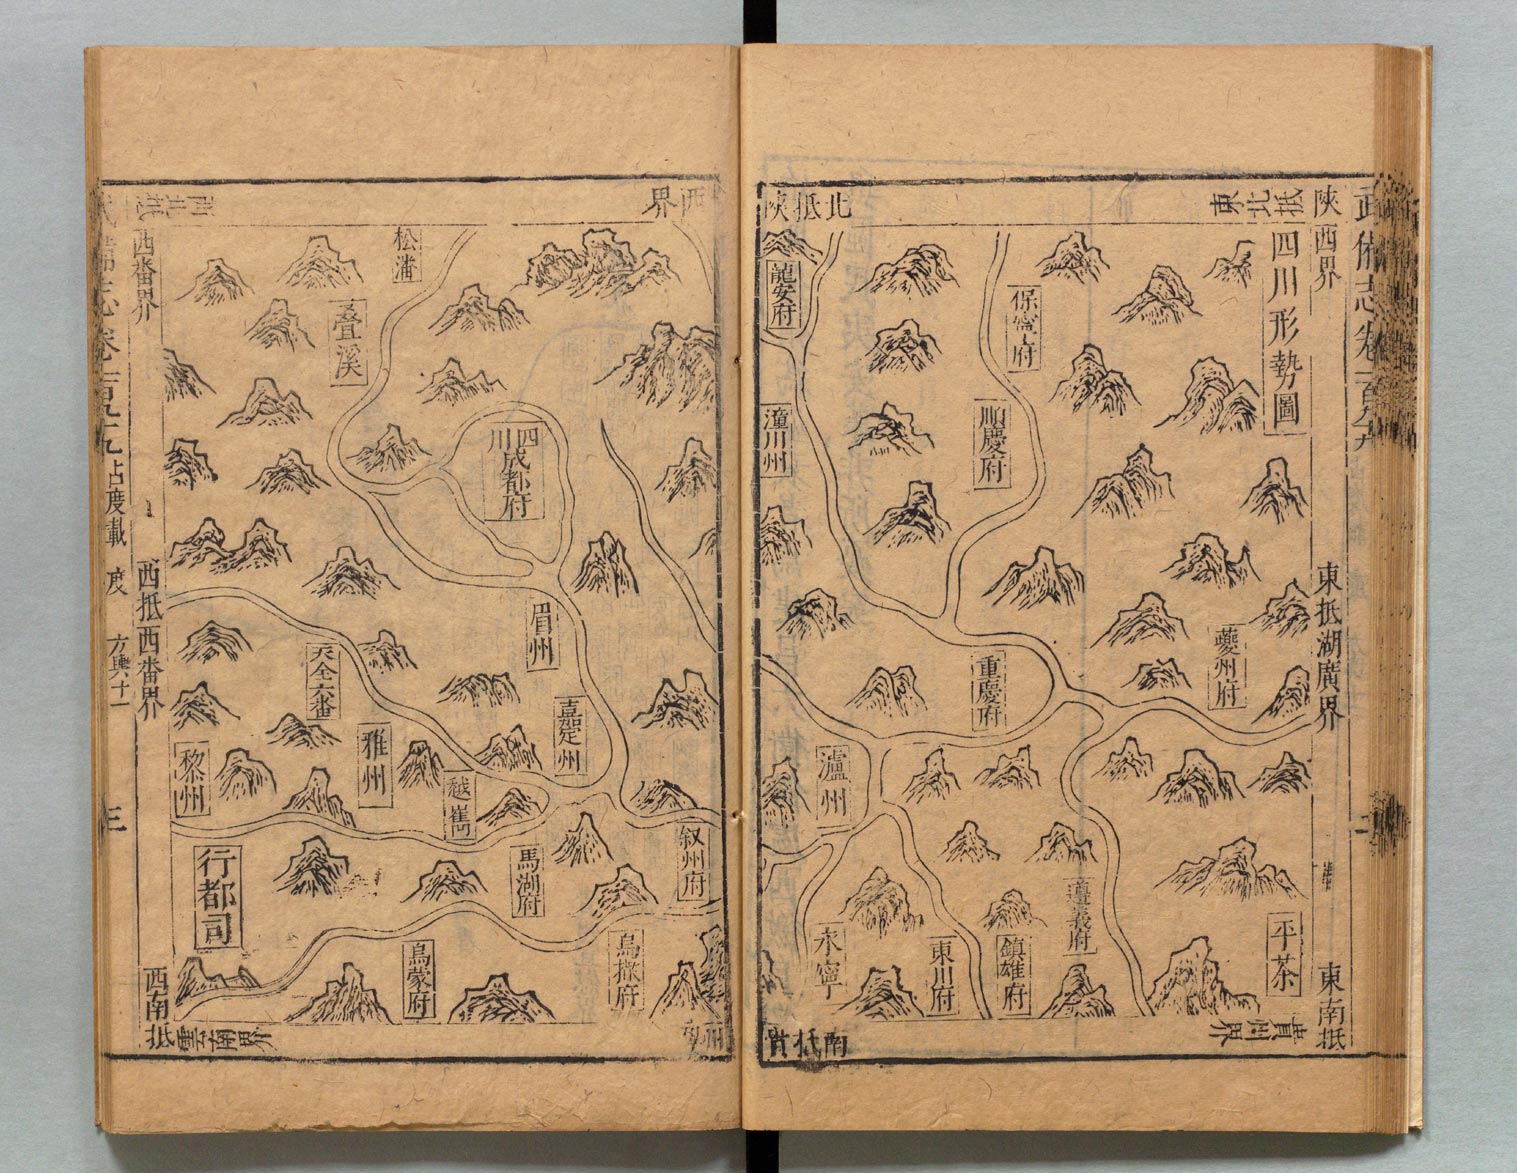 武備志卷一百九十九
四川形勢圖
東北抵
陝西界
東抵湖廣界
東南抵
貴州界
北抵陝
西界
保寧府
順慶府
龍安府
潼川州
夔州府
重慶府
瀘州
遵義府
平茶
鎮雄府
東川府
永寧
南抵貴
州界
松潘
疊溪
四川成都府
眉州
嘉定州
天全六番
雅州
黎州
越嶲
馬湖府
叙州府
行都司
烏蒙府
烏撒府
西北抵
西番界
西抵西番界
西南
抵雲南界
武備志卷一百九十九
占度載
度
方輿十一
三